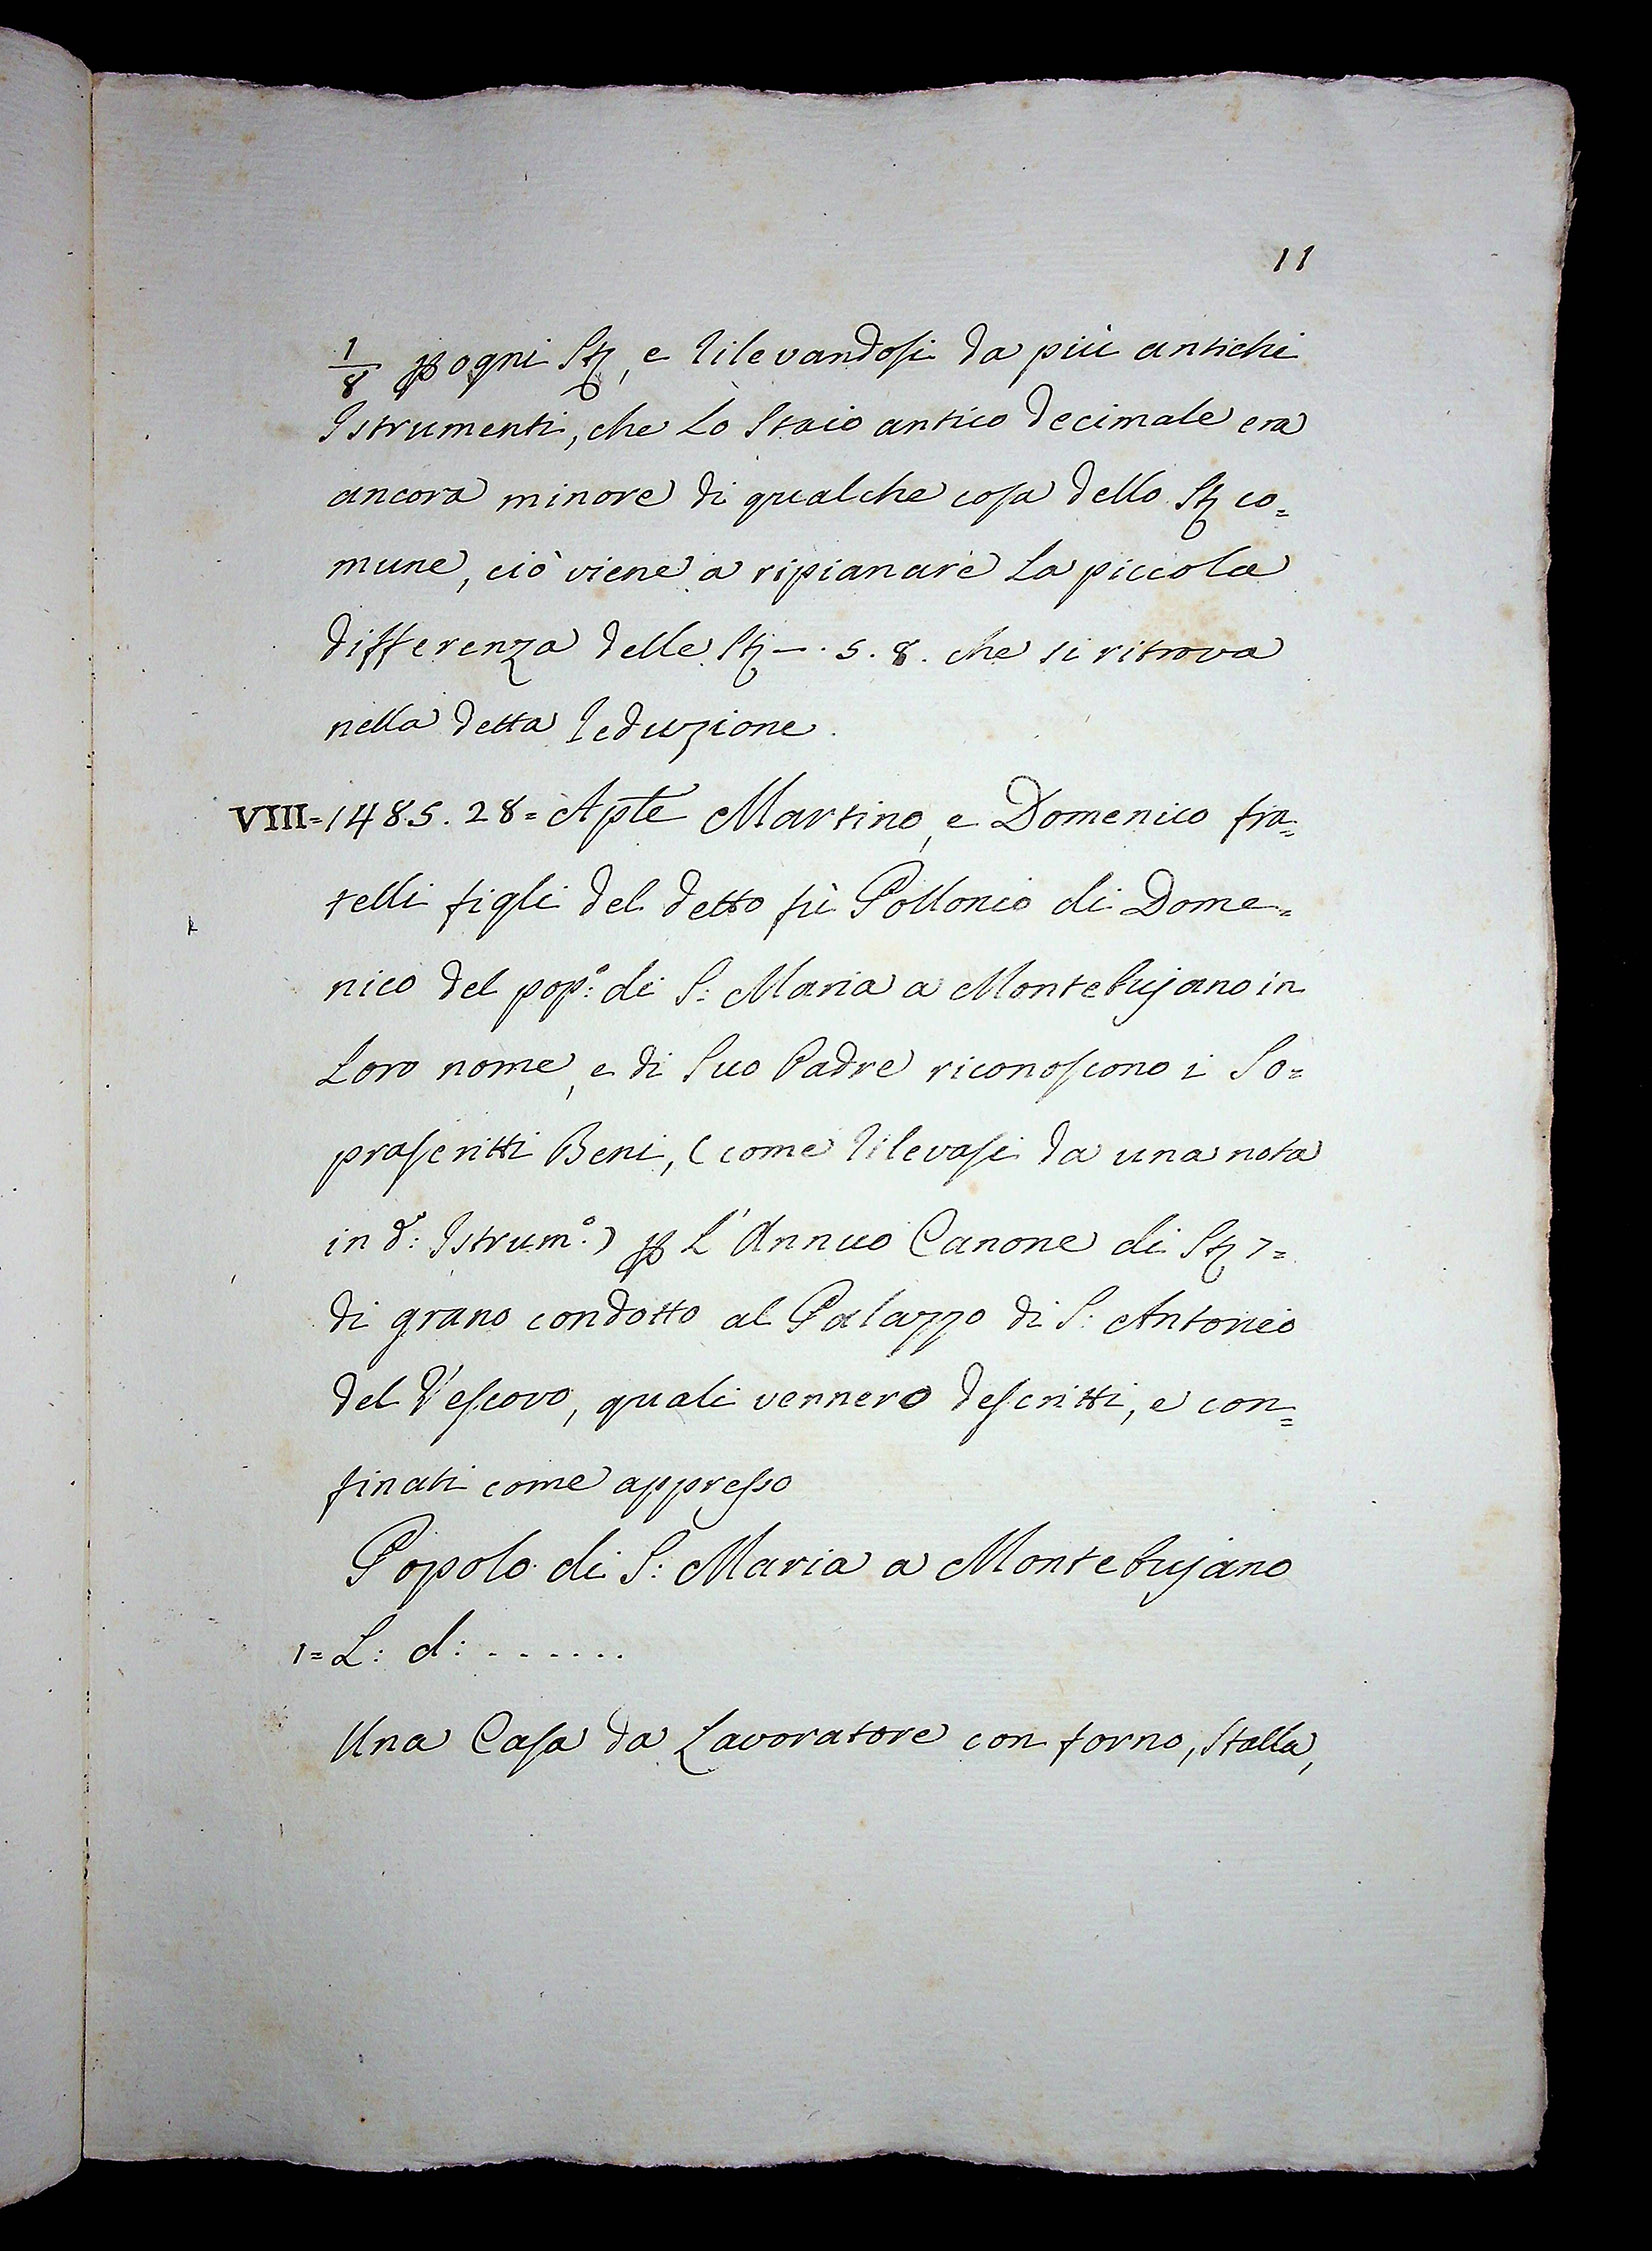 11
1/8 ꝑ ogni St͠a, e rilevandosi da più antichi
Istrumenti, che Lo Staio antico decimale era
ancora minore di qualche cosa dello St͠a co=
mune, ciò viene a ripianare La piccola
differenza delle St͠a —. 5. 8. che si ritrova
nella detta reduzione.
VIII=1485. 28= Aple Martino, e Domenico fra=
telli figli del detto fù Pollonio di Dome=
nico del pop:º di S: Maria a Montebujano in
Loro nome, e di Suo Padre riconoscono i So=
prascritti Beni, (come rilevasi da una nota
in d:º Istrum:º) ꝑ L'Annuo Canone di St͠a 7=
di grano condotto al Palazzo di S: Antonio
del Vescovo, quali vennero descritti, e con=
finati come appresso
Popolo di S: Maria a Montebujano
1= L: d: . . . . . . .
Una Casa da Lavoratore con forno, Stalla,